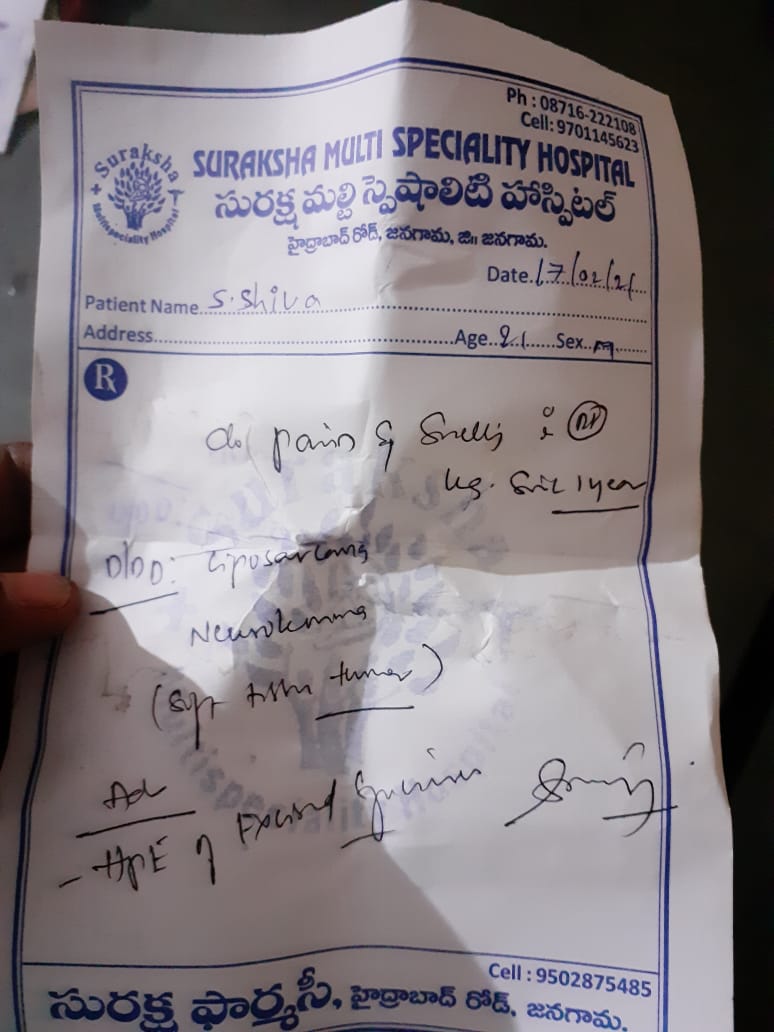 Ph : 08716-222108
Cell: 9701145623
Suraksha
Multispeciality Hospital
SURAKSHA MULTI SPECIALITY HOSPITAL
సురక్ష మల్టి స్పెషాలిటి హాస్పిటల్
హైద్రాబాద్ రోడ్, జనగామ, జి॥ జనగామ.
Date..17/02/21....
Patient Name S.Shiva
Address.......Age..21......Sex..m.......
R
c/o pain &
1 year
D/D: Liposarcoma
Neurolemma
(Soft tissue tumor)
Adv
- HPE of Excised Specimen
Cell : 9502875485
సురక్ష ఫార్మసీ, హైద్రాబాద్ రోడ్, జనగామ.